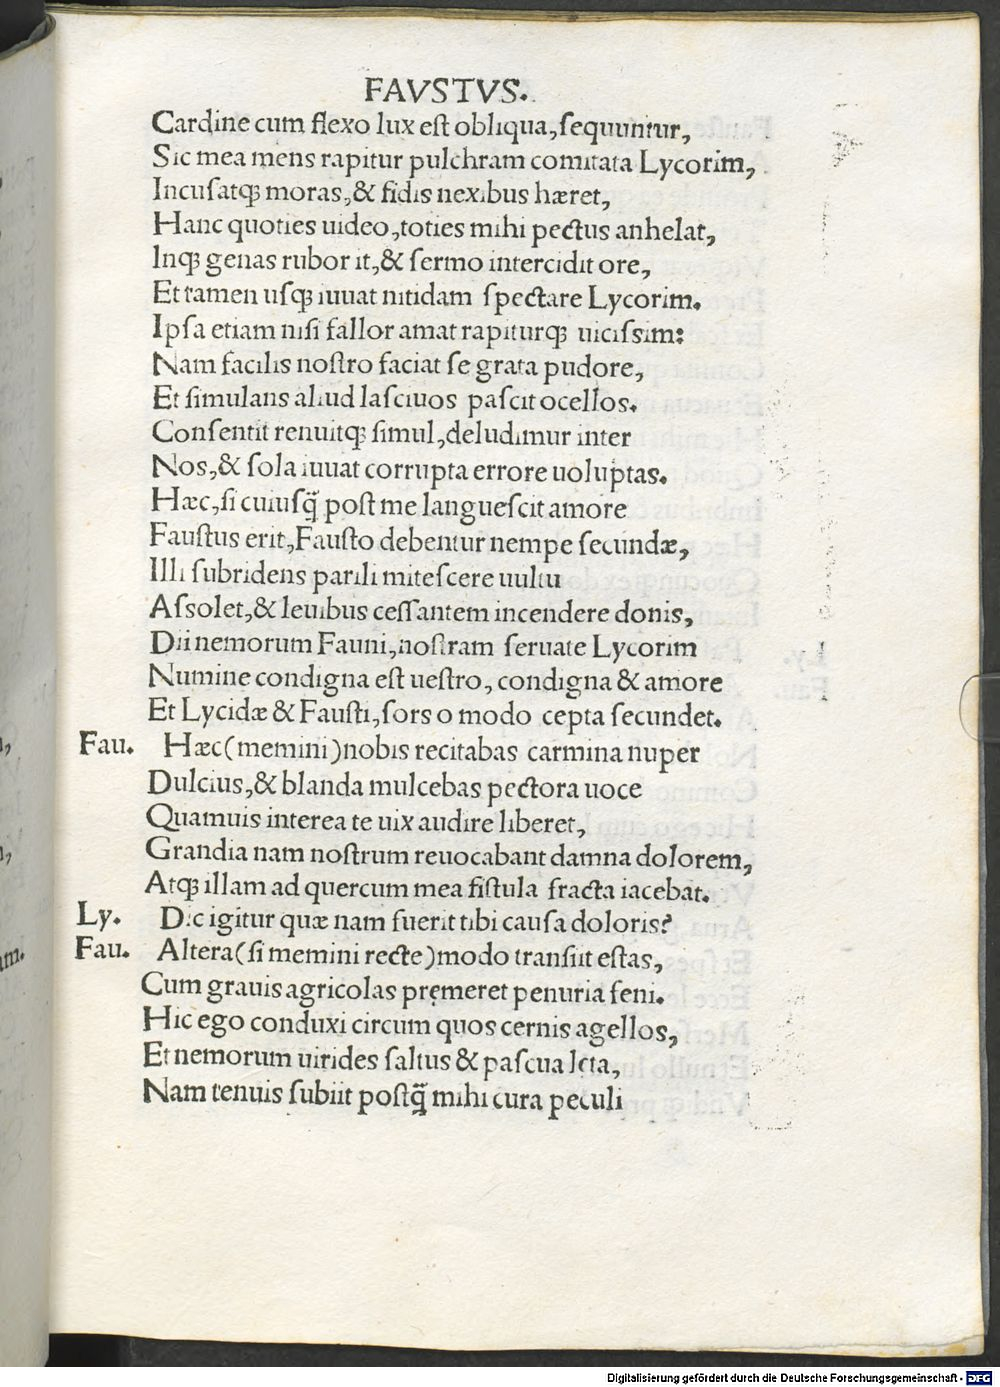 FAVSTVS.
Cardine cum flexo lux eſt obliqua,ſequuntur,
Sic mea mens rapitur pulchram comitata Lycorim,
Incuſatqꝫ moras,& fidis nexibus hæret,
Hanc quoties uideo,toties mihi pectus anhelat,
Inqꝫ genas rubor it,& ſermo intercidit ore,
Et tamen uſqꝫ iuuat nitidam ſpectare Lycorim.
Ipſa etiam niſi fallor amat rapiturqꝫ uiciſsim:
Nam facilis noſtro faciat ſe grata pudore,
Et ſimulans aliud laſciuos paſcit ocellos.
Conſentit renuitqꝫ ſimul,deludimur inter
Nos,& ſola iuuat corrupta errore uoluptas.
Hæc,ſi cuiuſq̃ poſt me langueſcit amore
Fauſtus erit,Fauſto debentur nempe ſecundæ,
Illi ſubridens parili miteſcere uultu
Aſſolet,& leuibus ceſſantem incendere donis,
Dii nemorum Fauni,noſtram ſeruate Lycorim
Numine condigna eſt ueſtro, condigna & amore
Et Lycidæ & Fauſti,ſors o modo cepta ſecundet.
Fau. Hæc(memini)nobis recitabas carmina nuper
Dulcius,& blanda mulcebas pectora uoce
Quamuis interea te uix audire liberet,
Grandia nam noſtrum reuocabant damna dolorem,
Atqꝫ illam ad quercum mea fiſtula fracta iacebat.
Ly. Dic igitur quæ nam fuerit tibi cauſa doloris?
Fau. Altera(ſi memini recte)modo tranſiit eſtas,
Cum grauis agricolas premeret penuria feni.
Hic ego conduxi circum quos cernis agellos,
Et nemorum uirides ſaltus & paſcua lęta,
Nam tenuis ſubiit poſtq̃ mihi cura peculi
Digitalisierung gefördert durch die Deutsche Forschungsgemeinschaft - DFG